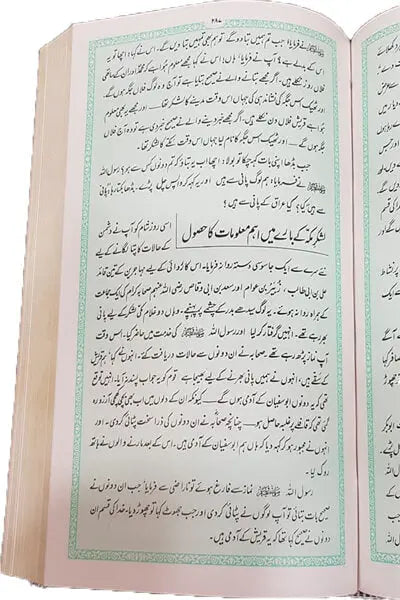 ۲۸۷
ﷺ نے فرمایا: جب تم ہمیں بتا دو گے تو ہم بھی تمہیں بتا دیں گے۔ اس نے کہا: اچھا تو یہ
اس کے بدلے ہے؟ آپ نے فرمایا: ہاں! اس نے کہا مجھے معلوم ہوا ہے کہ محمدؐ اور ان کے ساتھی
فلاں روز نکلے ہیں۔ اگر مجھے بتانے والے نے صحیح بتایا ہے تو آج وہ لوگ فلاں جگہ ہوں گے
اور ٹھیک اس جگہ کی نشاندہی کی جہاں اس وقت مدینے کا لشکر تھا۔ اور مجھے یہ بھی معلوم
ہوا ہے قریش فلاں دن نکلے ہیں۔ اگر مجھے خبر دینے والے نے صحیح خبر دی ہے تو وہ آج فلاں
جگہ ہوں گے — اور ٹھیک اس جگہ کا نام لیا جہاں اس وقت مکے کا لشکر تھا۔
جب بڈھا اپنی بات کہہ چکا تو بولا: اچھا اب یہ بتاؤ کہ تم دونوں کس سے ہو؟ رسول اللہ
ﷺ نے فرمایا، ہم لوگ پانی سے ہیں اور یہ کہہ کر واپس چل پڑے۔ بڈھا بکتا رہا "پانی
سے ہیں" کیا؟ کیا عراق کے پانی سے ہیں؟
لشکرِ مکہ کے بارے میں اہم معلومات کا حصول
اسی روز شام کو آپ نے دشمن
کے حالات کا پتا لگانے کے لیے
نئے سرے سے ایک جاسوسی دستہ روانہ فرمایا۔ اس کارروائی کے لیے مہاجرین کے تین قائد
علی بن ابی طالب، زبیر بن عوام اور سعد بن ابی وقاص رضی اللہ عنہم صحابہ کرام کی ایک جماعت
کے ہمراہ روانہ ہوئے۔ یہ لوگ سیدھے بدر کے چشمے پہ پہنچے۔ وہاں دو غلام مکی لشکر کے لیے پانی
بھر رہے تھے۔ انہیں گرفتار کر لیا اور رسول اللہ ﷺ کی خدمت میں حاضر کیا۔ اس وقت
آپ نماز پڑھ رہے تھے۔ صحابہ نے ان دونوں سے حالات دریافت کئے۔ انہوں نے کہا ہم قریش
کے سقے ہیں، انہوں نے ہمیں پانی بھرنے کے لیے بھیجا ہے۔ قوم کو یہ جواب پسند نہ آیا۔ انہیں توقع
تھی کہ یہ دونوں ابوسفیان کے آدمی ہوں گے — کیونکہ ان کے دلوں میں اب بھی بچی کھچی آرزو رہ
گئی تھی کہ قافلے پر غلبہ حاصل ہو — چنانچہ صحابہؓ نے ان دونوں کی ذرا سخت پٹائی کر دی۔ اور
انہوں نے مجبور ہو کر کہہ دیا کہ ہاں ہم ابوسفیان کے آدمی ہیں۔ اس کے بعد مارنے والوں نے ہاتھ
روک لیا۔
رسول اللہ ﷺ نماز سے فارغ ہوئے تو ناراضی سے فرمایا: جب ان دونوں نے
صحیح بات بتائی تو آپ لوگوں نے پٹائی کر دی اور جب جھوٹ کہا تو چھوڑ دیا۔ خدا کی قسم ان
دونوں نے صحیح کہا تھا کہ یہ قریش کے آدمی ہیں۔